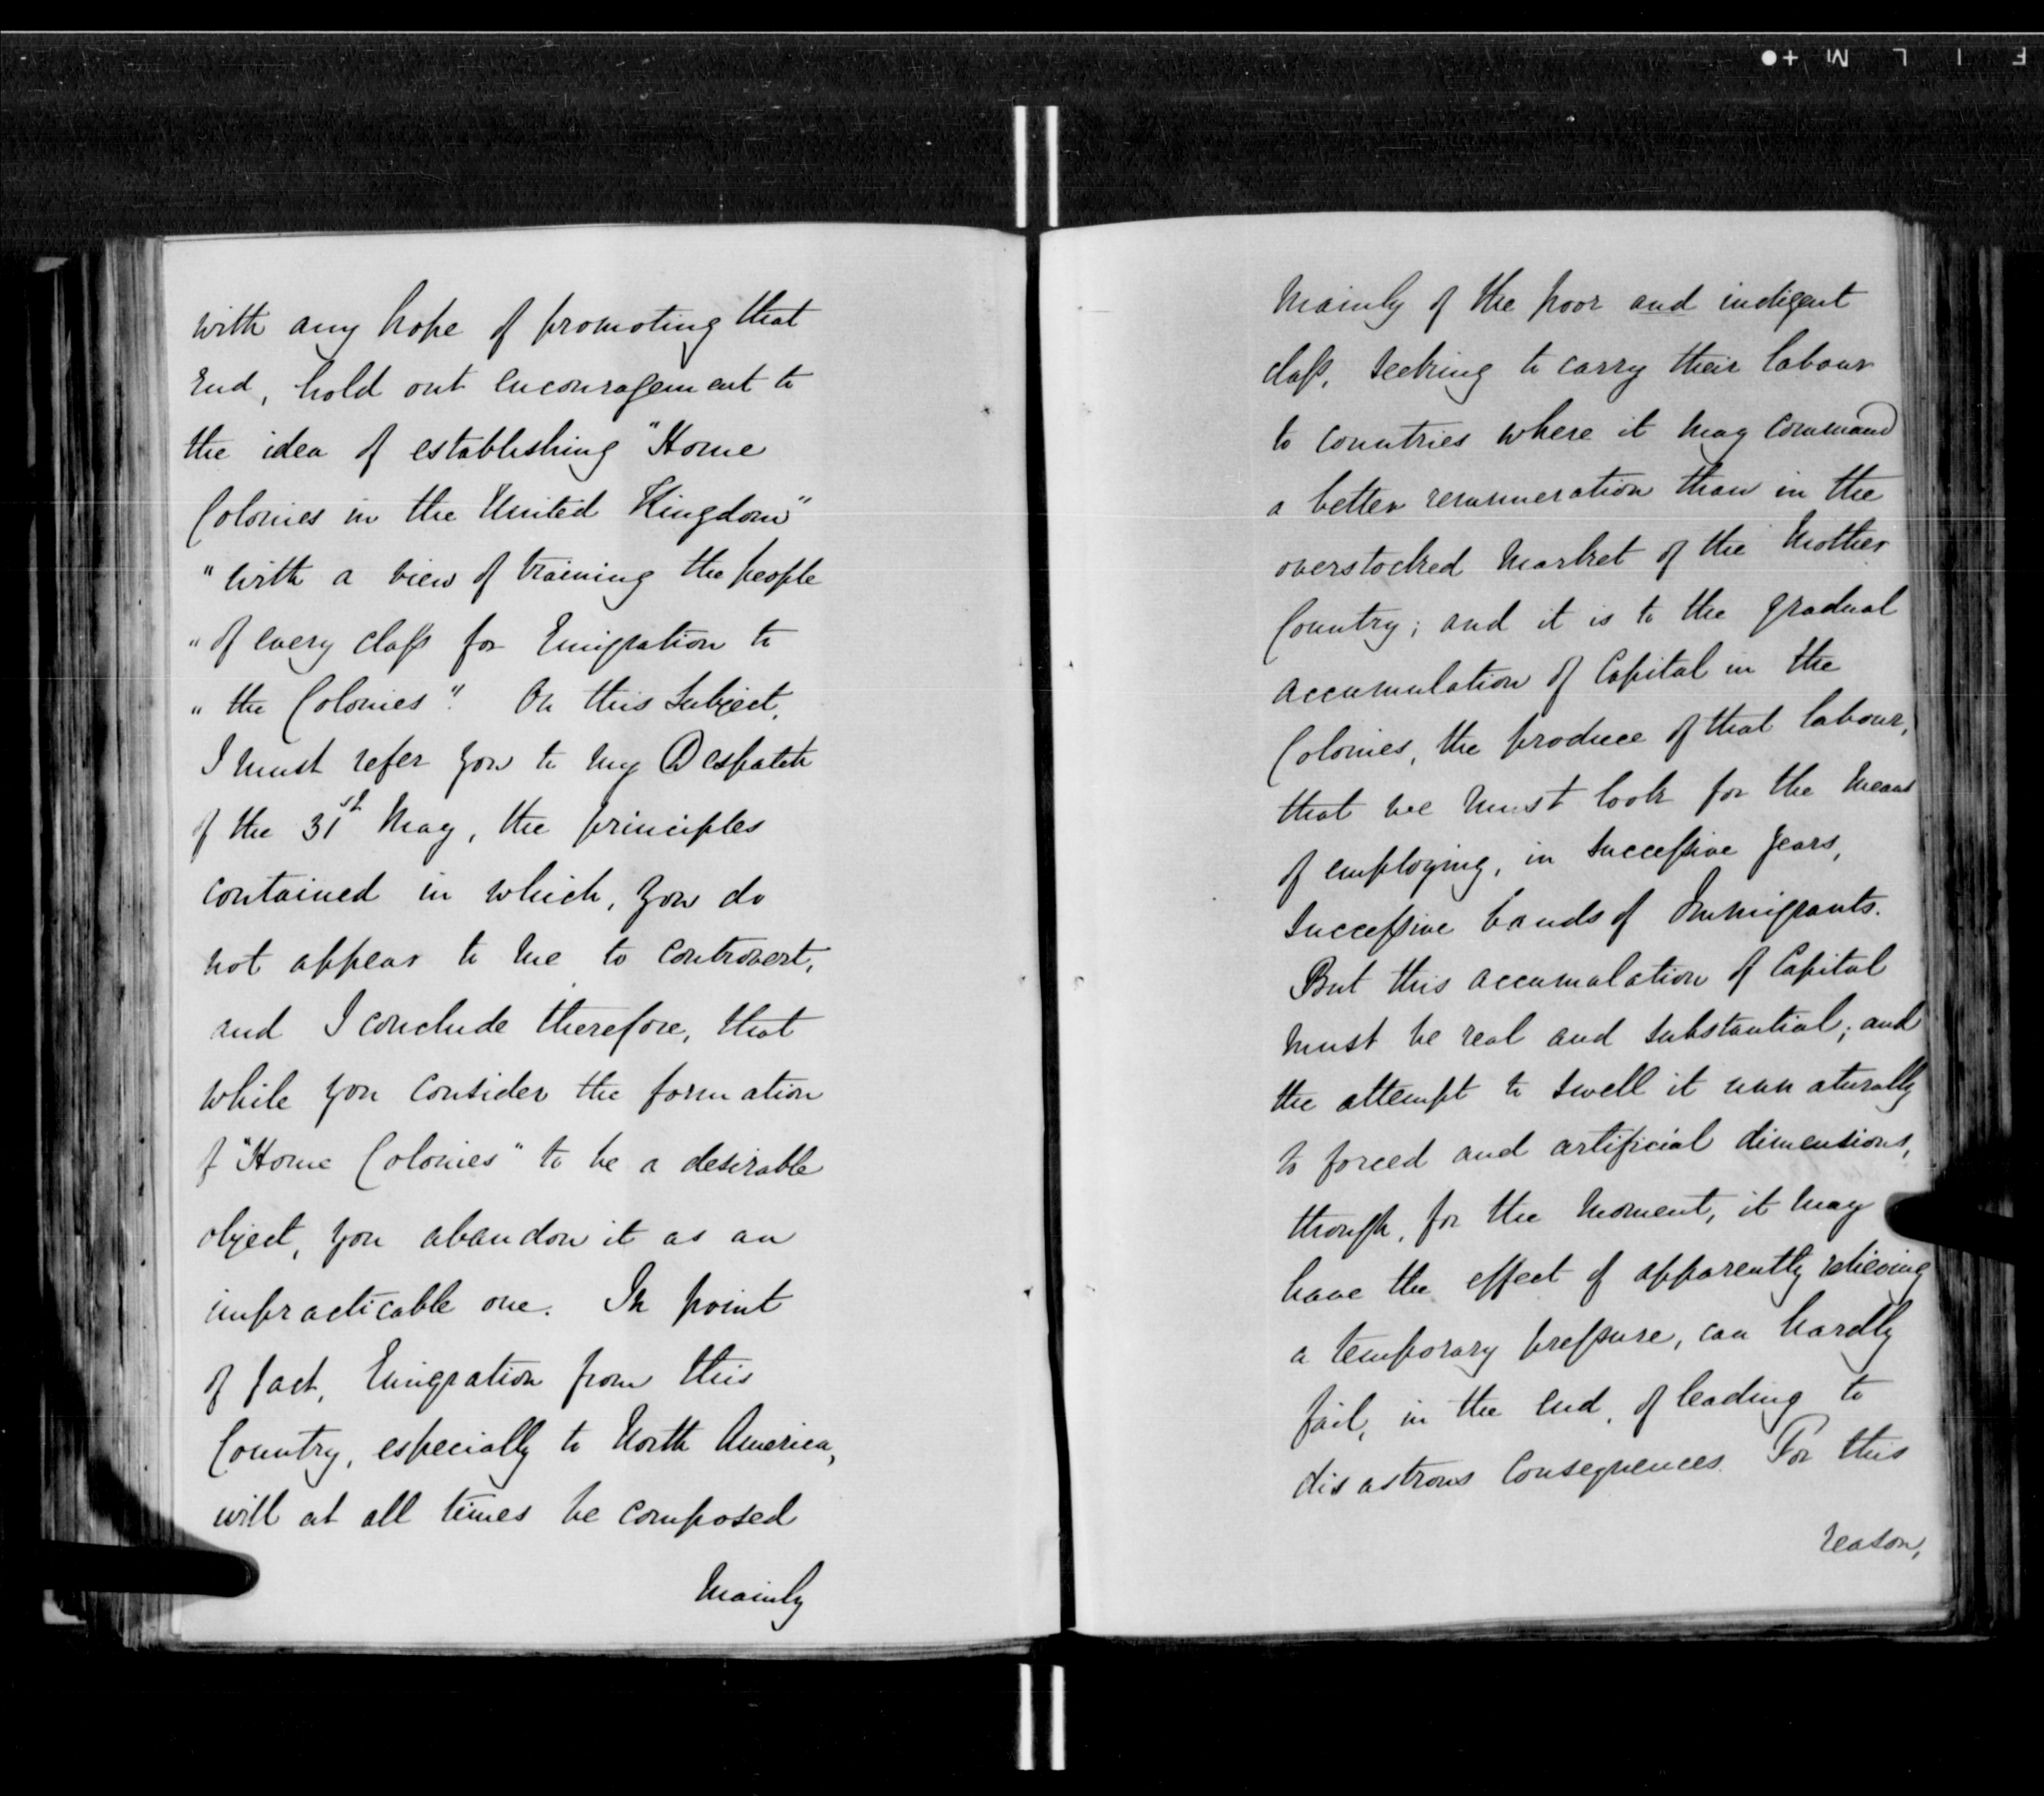 with any hope of promoting that
End, hold out encouragement to
the idea of establishing "Home
Colonies in the United Kingdom"
"with a view of training the people
"of every class for Emigration to
"the Colonies". On this Subject,
I must refer you to my Despatch
of the 31st May, the principles
contained in which, you do
not appear to me to controvert,
and I conclude therefore, that
while you consider the formation
of "Home Colonies" to be a desirable
object, you abandon it as an
impracticable one. In point
of fact, Emigration from this
Country, especially to North America,
will at all times be composed
Mainly
Mainly of the poor and indigent
class, seeking to carry their labour
to countries where it may command
a better remuneration than in the
overstocked Market of the Mother
Country; and it is to the gradual
accumulation of Capital in the
Colonies, the produce of that labour,
that we must look for the means
of employing, in successive years,
successive bands of Immigrants.
But this accumulation of Capital
must be real and substantial; and
the attempt to swell it unnaturally
to forced and artificial dimensions,
though, for the moment, it may
have the effect of apparently relieving
a temporary pressure, can hardly
fail, in the end, of leading to
disastrous Consequences. For this
reason,
F I L M +